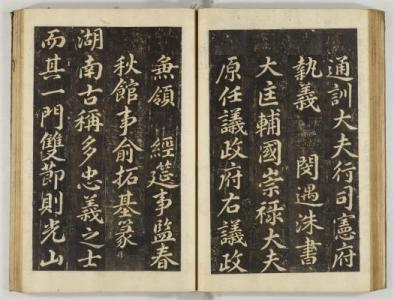 通訓大夫行司憲府
執義 閔遇洙書
大匡輔國崇祿大夫
原任議政府右議政
兼領 經筵事監春
秋館事俞拓基篆
湖南古稱多忠義之士
而其一門雙節則光山